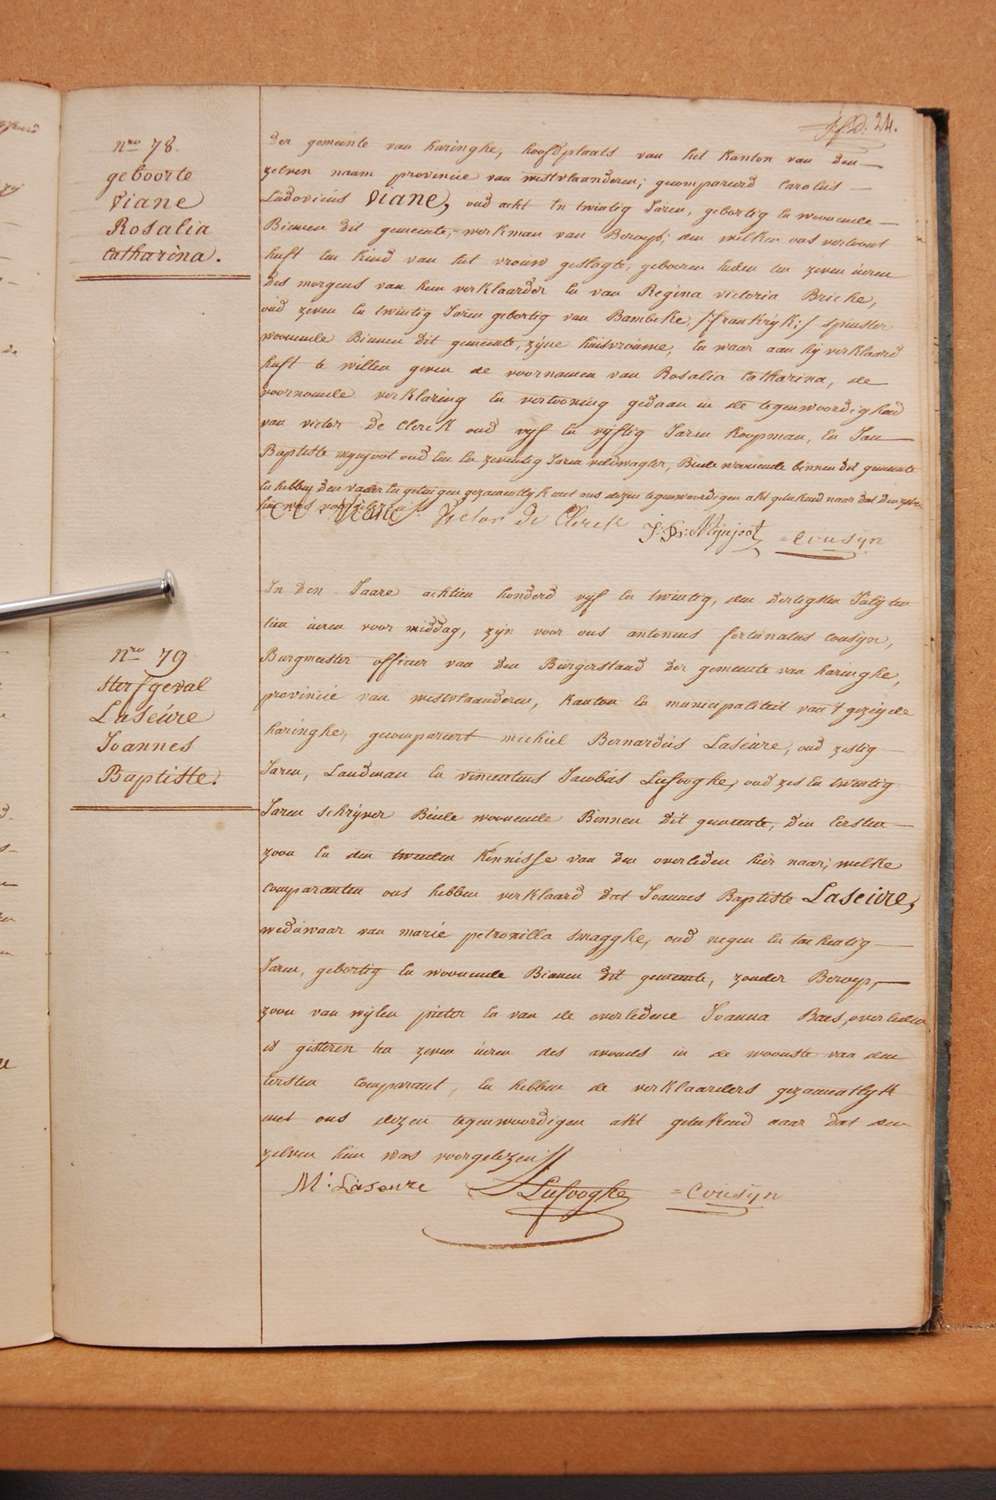 24.
nro 78.
geboorte
Viane
Rosalia
Catharina.
Der gemeinte van haringhe, hoofdplaats van het Kanton van den
zelven naam provincie van westvlaanderen; gecompareerd Carolus
Ludovicus Viane, oud acht en twintig Jaren, gebortig en woonende
Binnen dit gemeente, werkman van Beroep; den welken ons vertoont
heeft een kind van het vrouw geslagte, geboren heden ten zeven ueren
Des morgens van hem verklaarder en van Regina Victoria Bricke,
oud zeven en twintig Jaren gebortig van Bambeke /:frankrijk:/ spinster
woonende Binnen dit gemeente, zijne huisvrouwe, en waar aan hij verklaard
heeft te willen geven de voornamen van Rosalia Catharina, de
voornoemde verklaring en vertooning gedaan in de tegenwoordigheid
van victor De Clerck oud vijf en vijftig Jaren Koopman, en Jan
Baptiste mynjoot oud een en zeventig Jaren veldwagter, Beide woonende binnen dit gemeente
en hebben den vader en getuigen gezamentlyk met ons dezen tegenwoordigen akt geteekend naar dat den zelven
hun was voorgelezen
Viane Victor De Clerck J: Bt: Mynjoot = Cousyn
nro 79
sterfgeval
Laseure
Joannes
Baptiste.
In den Jaare achtien honderd vijf en twintig, den dertigsten July ten
tien ueren voor middag, zijn voor ons antonius fortunatus cousyn,
Burgmeester officier van den Burgerstand der gemeente van haringhe,
provincie van westvlaanderen, Kanton en municipaliteit van 't gezegde
haringhe, gecompareert michiel Bernardus Laseure, oud zestig
Jaren, Landman en vincentius Jacobus Lefooghe, oud zes en twintig
Jaren schryver Beide woonende Binnen dit gemeente, den Eersten
zoon en den tweeden Kennisse van den overleden hier naar; welke
comparanten ons hebben verklaard dat Joannes Baptiste Laseure,
weduwaar van marie petronilla smagghe, oud negen en tachentig
Jaren, gebortig en woonende Binnen dit gemeente, zonder Beroep,
zoon van wylen pieter en van de overledene Joanna Baes, overleden
is gisteren ten zeven ueren des avonds in de woonste van den
Eersten comparant, en hebben de verklaarders gezamentlyk
met ons dezen tegenwoordigen akt geteekend naar dat den
zelven hun was voorgelezen
M: Laseure Lefooghe = Cousyn